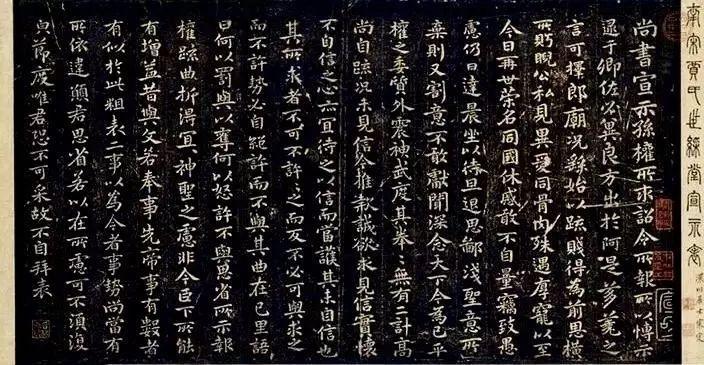 南宋賈氏世綵堂宣示表
尚書宣示孫權所求詔令所報所以博示
逮于卿佐必冀良方出於阿是芻蕘之
言可擇郎廟況繇始以疏賤得為前恩橫
所盼睨公私見異愛同骨肉殊遇厚寵以至
今日再世榮名同國休慼敢不自量竊致愚
慮仍日達晨坐以待旦退思鄙淺聖意所
棄則又割意不敢獻聞深念天下今為已平
權之委質外震神武度其拳〻無有二計高
尚自疏況未見信今推款誠欲求見信實懷
不自信之心亦宜待之以信而當護其未自信也
其所求者不可不許〻之而反不必可與求之
而不許勢必自絕許而不與其曲在己里語
曰何以罰與以奪何以怒許不與思省所示報
權疏曲折得宜〻神聖之慮非今臣下所能
有增益昔與文若奉事先帝事有數者
有似於此粗表二事以為今者事勢尚當有
所依違願君思省若以在所慮可不須復
皃節度唯君恐不可采故不自拜表